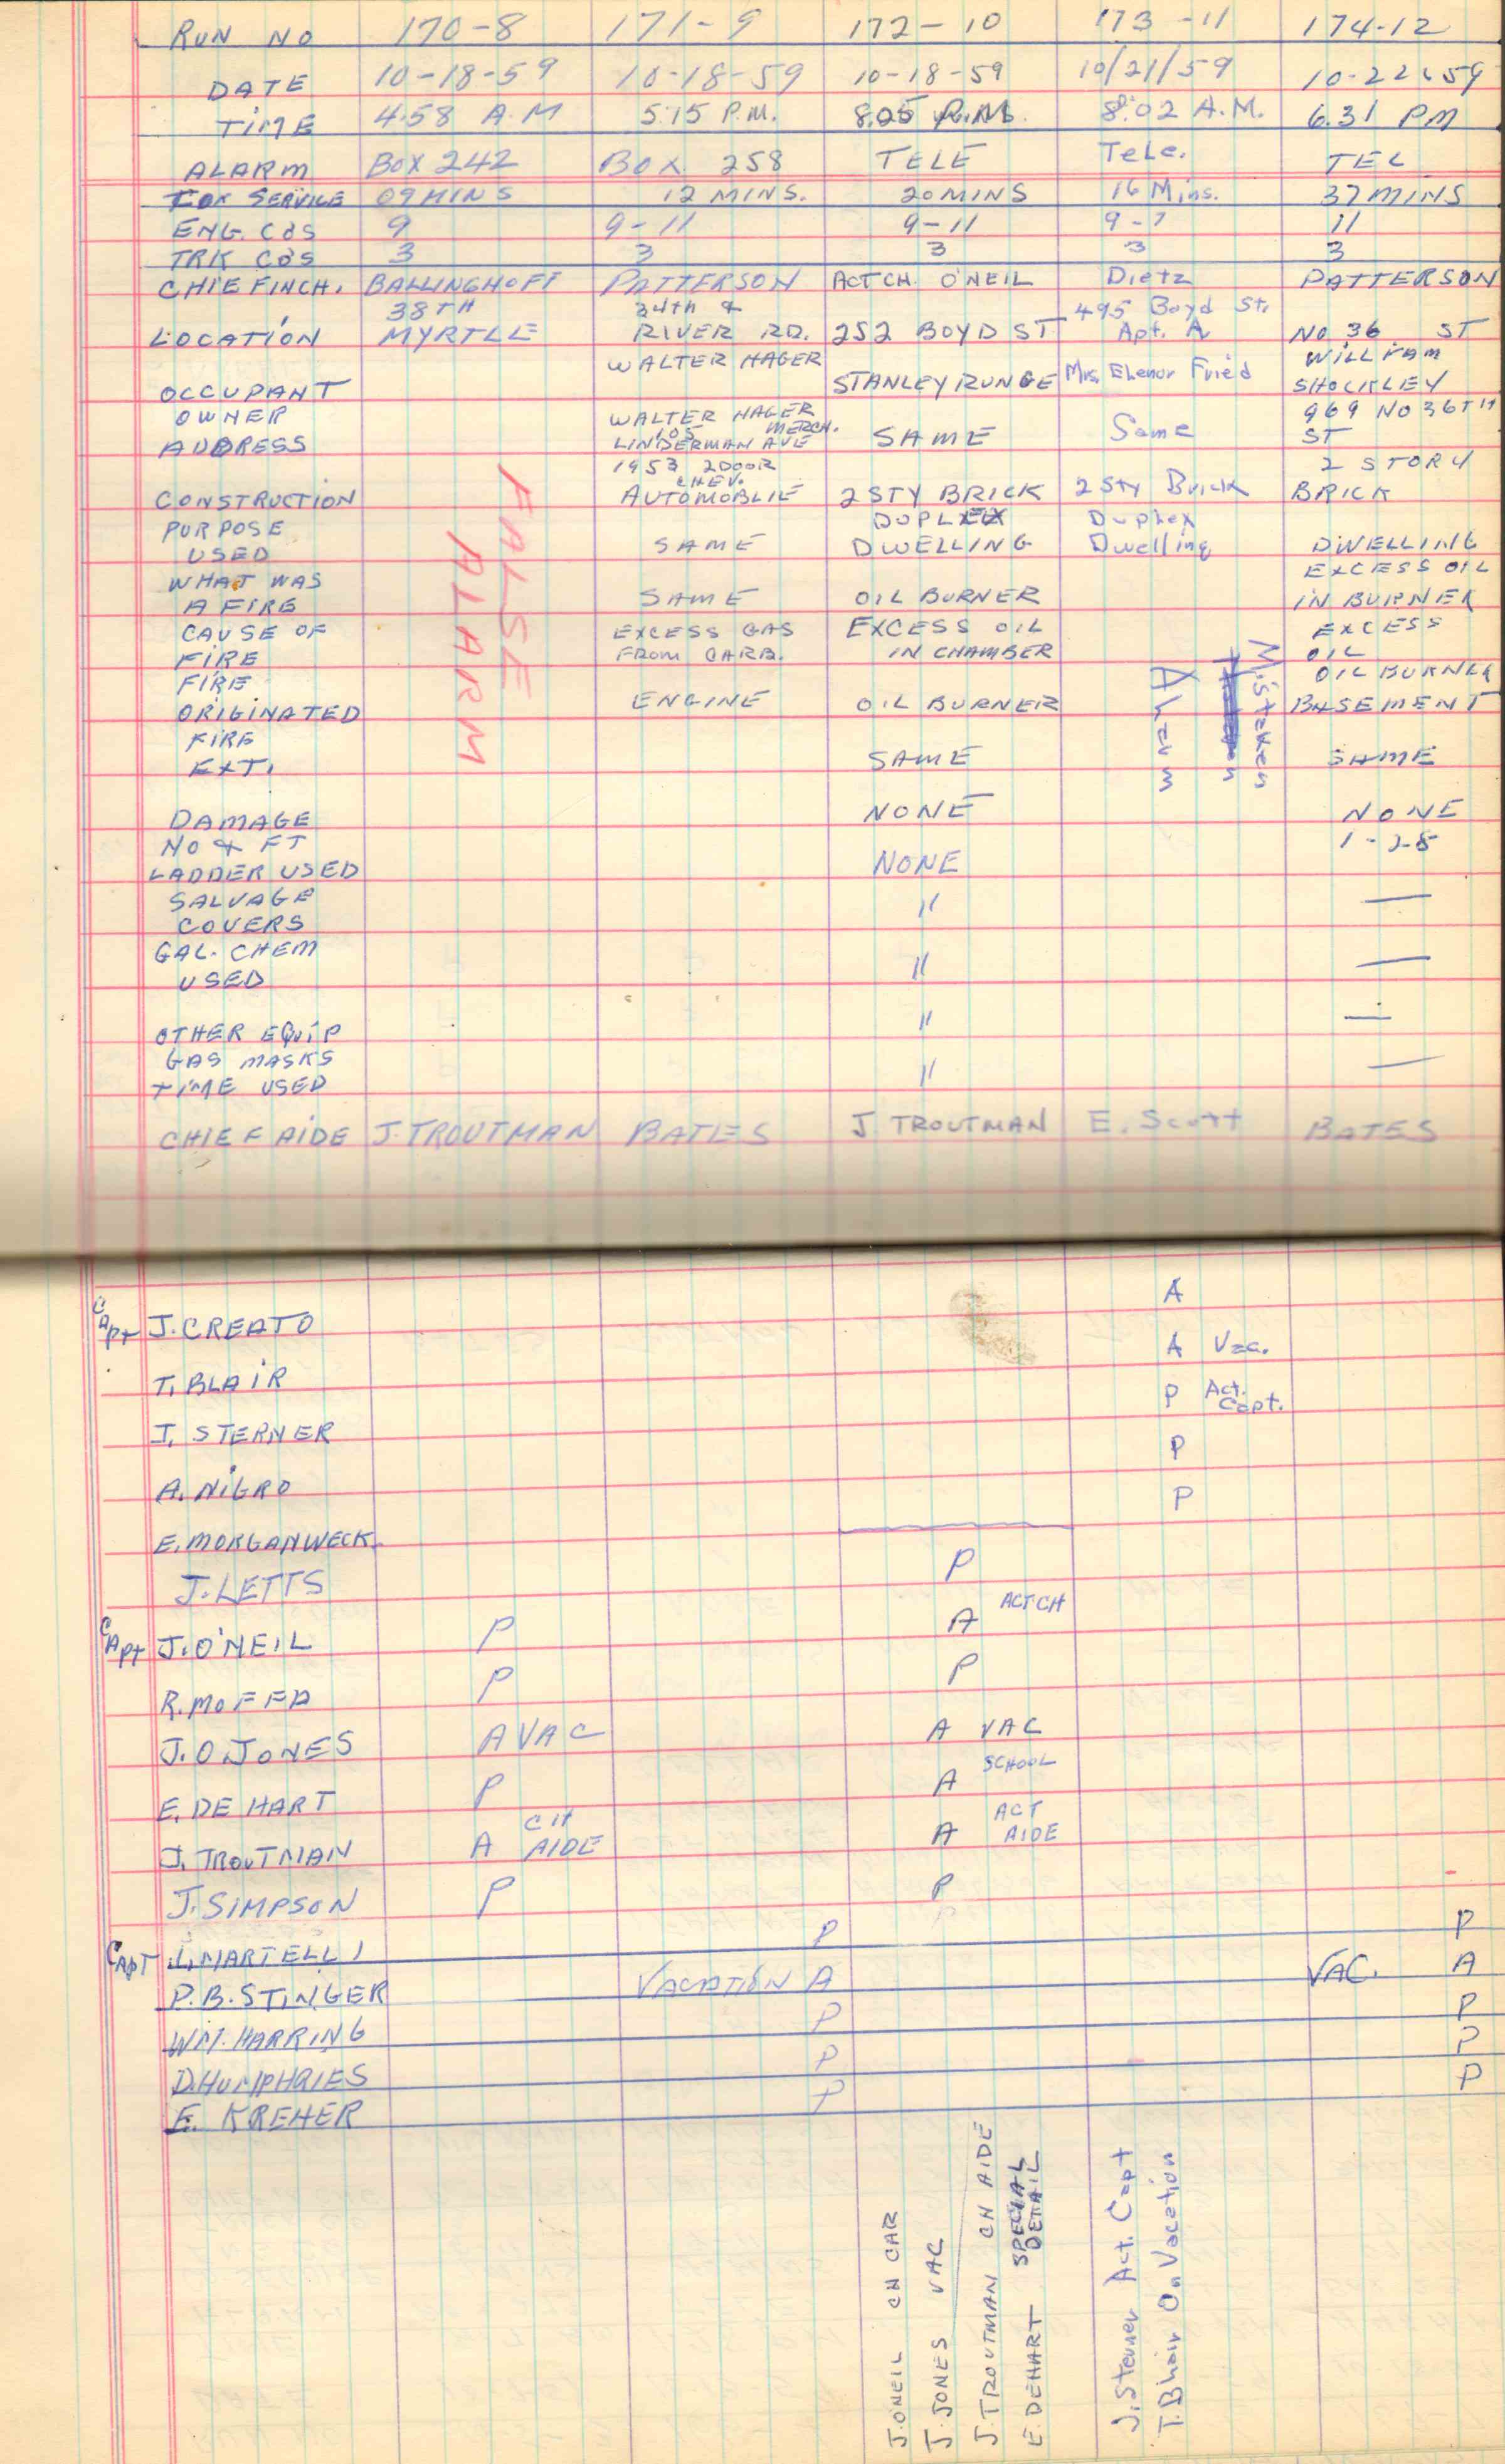 RUN NO 170-8 171-9 172-10 173-11 174-12
DATE 10-18-59 10-18-59 10-18-59 10/21/59 10-22-59
TIME 4:58 A.M 5:15 P.M. 8:05 P.M. 8:02 A.M. 6:31 PM
ALARM BOX 242 BOX 258 TELE Tele. TEL
SERVICE 09 MINS 12 MINS. 20 MINS 16 Mins. 37 MINS
ENG. COS 9 9-11 9-11 9-7 11
TRK COS 3 3 3 3 3
CHIEF INCH. BALLINGHOFF PATTERSON ACT CH. O'NEIL Dietz PATTERSON
38TH 34th & 495 Boyd St.
LOCATION MYRTLE RIVER RD. 252 BOYD ST Apt. A No 36 ST
WALTER HAGER WILLIAM
OCCUPANT STANLEY RUNGE Mrs. Elenor Fried SHOCKLEY
OWNER WALTER HAGER 969 NO 36TH
105 MERCH.
ADDRESS LINDERMAN AVE SAME Same ST
1953 2DOOR 2 STORY
CHEV.
CONSTRUCTION AUTOMOBLIE 2 STY BRICK 2 Sty Brick BRICK
PURPOSE DUPLEX Duplex
USED SAME DWELLING Dwelling DWELLING
WHAT WAS EXCESS OIL
A FIRE SAME OIL BURNER IN BURNER
CAUSE OF EXCESS GAS EXCESS OIL EXCESS
FIRE FROM CARB. IN CHAMBER OIL
FIRE OIL BURNER
ORIGINATED ENGINE OIL BURNER BASEMENT
FIRE
EXT. SAME SAME
DAMAGE NONE NONE
NO & FT 1-28
LADDER USED NONE
SALVAGE
COVERS " —
GAL. CHEM
USED " —
OTHER EQUIP " —
GAS MASKS
TIME USED " —
FALSE
ALARM
Mistaken
Alarm
CHIEF AIDE J. TROUTMAN BATES J. TROUTMAN E. Scott BATES
CAPT J. CREATO A
T. BLAIR A Vac.
J. STERNER P Act. Capt.
A. NIGRO P
E. MORGANWECK P
J. LETTS P
CAPT J. O'NEIL P A ACT CH
R. MOFFA P P
J. O. JONES A VAC A VAC
E. DE HART P A SCHOOL
J. TROUTMAN A CH AIDE A ACT AIDE
J. SIMPSON P P
CAPT L. MARTELLI P P
P. B. STINGER VACATION A VAC. A
WM. HARRING P P
D. HUMPHRIES P P
E. KREHER P P
J. ONEIL CH CAR
J. JONES VAC
J. TROUTMAN CH AIDE
E. DEHART SPECIAL DETAIL
J. Sterner Act. Capt
T. Blair On Vacation